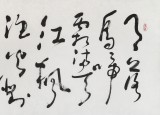 月落
烏啼
霜滿天
江楓
漁火對